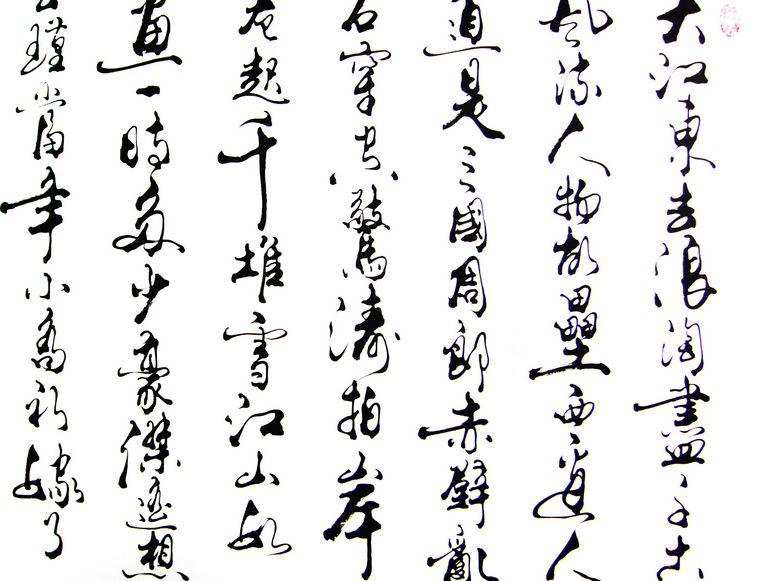 大江東去浪淘盡千古
風流人物故壘西邊人
道是三國周郎赤壁亂
石穿空驚濤拍岸
卷起千堆雪江山如
畫一時多少豪傑遙想
公瑾當年小喬初嫁了